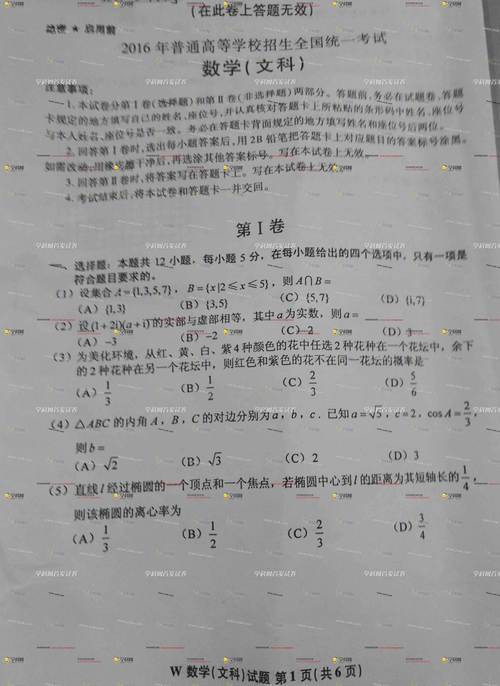 (在此卷上答题无效)
绝密 ★ 启用前
2016 年普通高等学校招生全国统一考试
数学(文科)
注意事项:
1. 本试卷分第 I 卷(选择题)和第 II 卷(非选择题)两部分。答题前,务必在试题卷、答题
卡规定的地方填写自己的姓名、座位号,并认真核对答题卡上所粘贴的条形码中姓名、座位号
与本人姓名、座位号是否一致。务必在答题卡背面规定的地方填写姓名和座位号后两位。
2. 回答第 I 卷时,选出每小题答案后,用 2B 铅笔把答题卡上对应题目的答案标号涂黑。
如需改动,用橡皮擦干净后,再选涂其他答案标号。写在本试卷上无效。
3. 回答第 II 卷时,将答案写在答题卡上。写在本试卷上无效。
4. 考试结束后,将本试卷和答题卡一并交回。
第 I 卷
一、选择题: 本题共 12 小题,每小题 5 分,在每小题给出的四个选项中,只有一项是
符合题目要求的。
(1) 设集合 A={1,3,5,7},B={x|2≤x≤5},则 A∩B=
(A) {1,3} (B) {3,5} (C) {5,7} (D) {1,7}
(2) 设(1+2i)(a+i)的实部与虚部相等,其中a为实数,则a=
(A) −3 (B) −2 (C) 2 (D) 3
(3) 为美化环境,从红、黄、白、紫4种颜色的花中任选2种花种在一个花坛中,余下
的2种花种在另一个花坛中,则红色和紫色的花不在同一花坛的概率是
(A) 1/3 (B) 1/2 (C) 2/3 (D) 5/6
(4) △ABC 的内角 A,B,C 的对边分别为a,b,c. 已知a=√5,c=2,cos A=2/3,
则b=
(A) √2 (B) √3 (C) 2 (D) 3
(5) 直线l经过椭圆的一个顶点和一个焦点,若椭圆中心到l的距离为其短轴长的1/4,
则该椭圆的离心率为
(A) 1/3 (B) 1/2 (C) 2/3 (D) 3/4
W 数学(文科)试题 第 1 页(共 6 页)